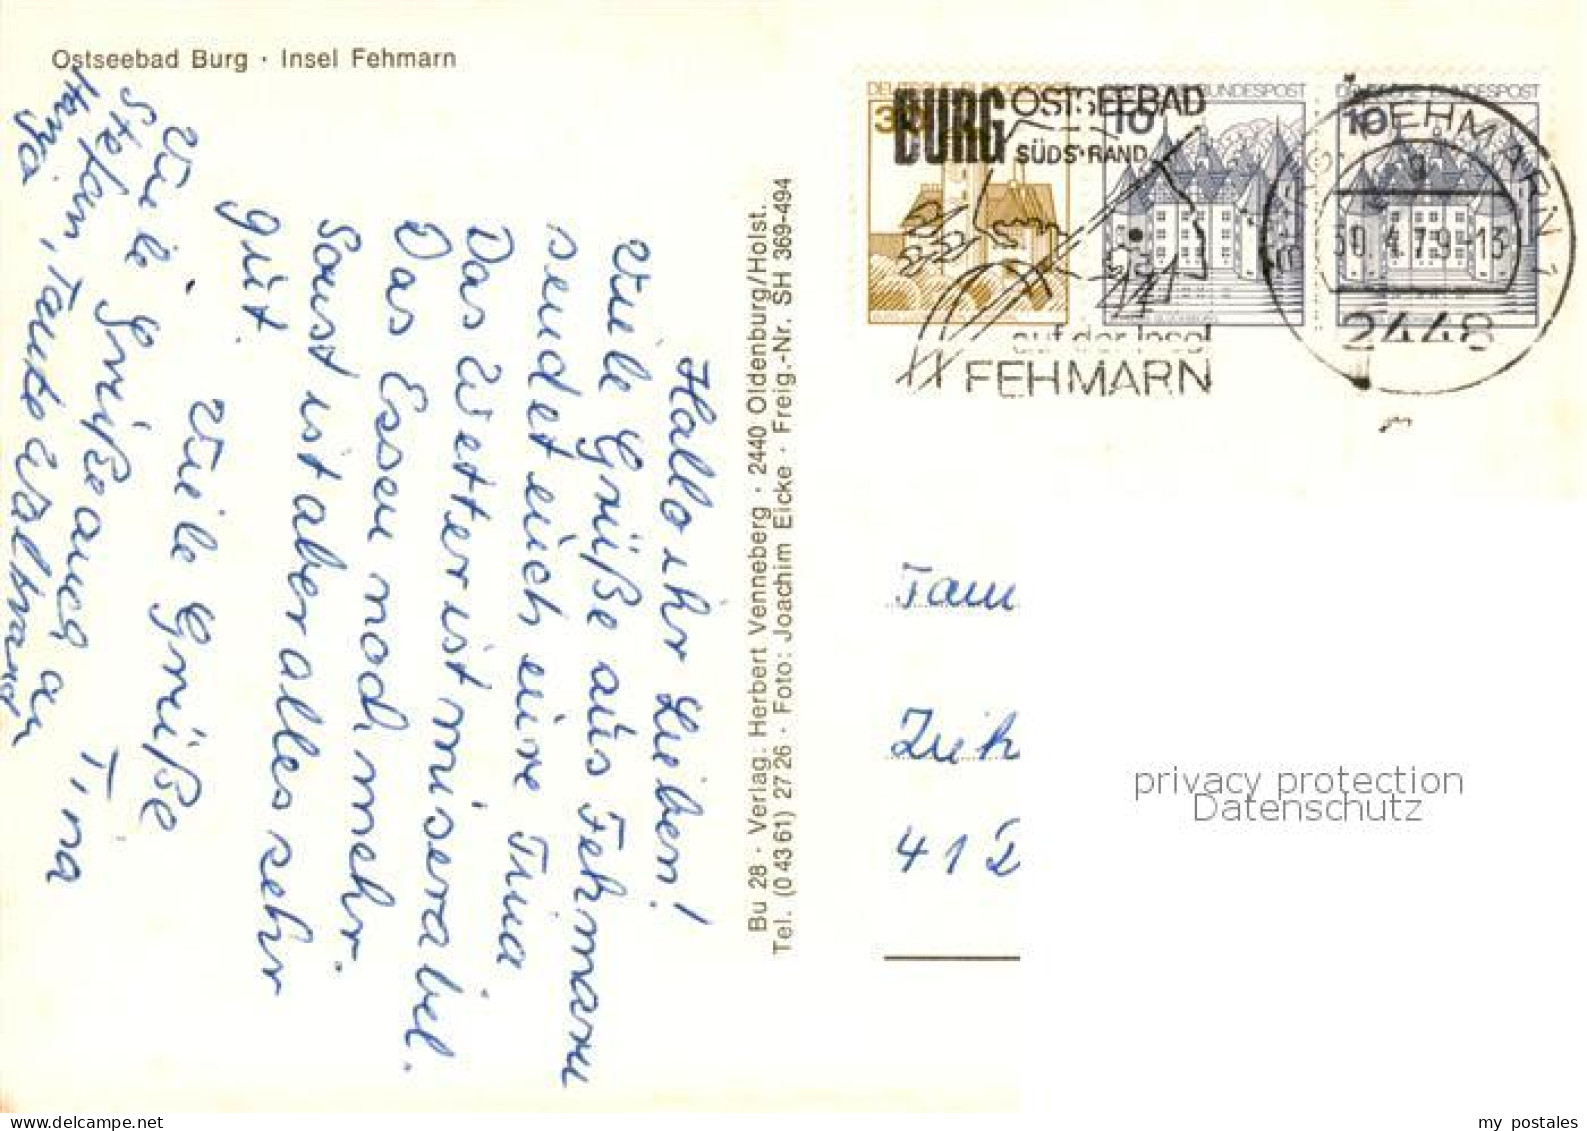 Ostseebad Burg · Insel Fehmarn
Hallo ihr Lieben!
Viele Grüße aus Fehmarn
sendet euch eure Tina
Das Wetter ist miserabel.
Das Essen noch mehr.
Sonst ist aber alles sehr
gut
Viele Grüße
Tina
Viele Grüße auch an
Stefan, Tante Waltraud
Bu 28 · Verlag: Herbert Venneberg · 2440 Oldenburg/Holst.
Tel. (0 43 61) 27 26 · Foto: Joachim Eicke · Freig.-Nr. SH 369-494
DEUTSCHE BUNDESPOST
10
DEUTSCHE BUNDESPOST
10
DEUTSCHE BUNDESPOST
BURG OSTSEEBAD
SÜDSTRAND
auf der Insel
FEHMARN
BURG, FEHMARN 1
30.4.79-13
2448
Fam
Zieh
41 D
privacy protection
Datenschutz
my postales